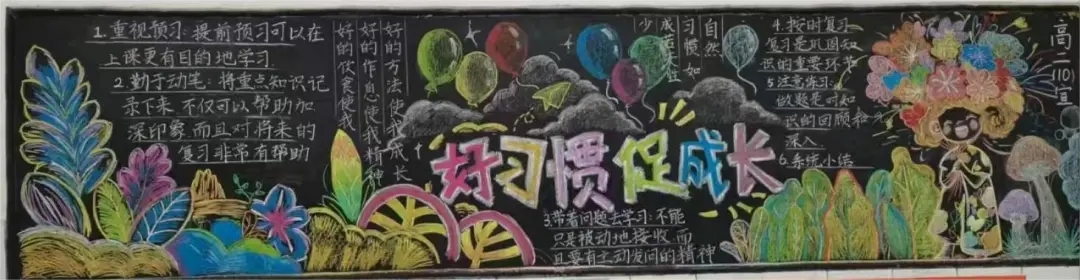 1.重视预习：提前预习可以在
上课更有目的地学习
2.勤于动笔：将重点知识记
录下来 不仅可以帮助加
深印象 而且对将来的
复习非常有帮助
好的方法使我成长
好的作息使我精神
好的饮食使我
少成若天性
习惯如
自然
好习惯促成长
3.带着问题去学习：不能
只是被动地接收 而
且要有主动发问的精神
4.按时复习
复习是巩固知
识的重要环节
5.注意练习
做题是对知
识的回顾和
深入
6.系统小结
高二(10)宣